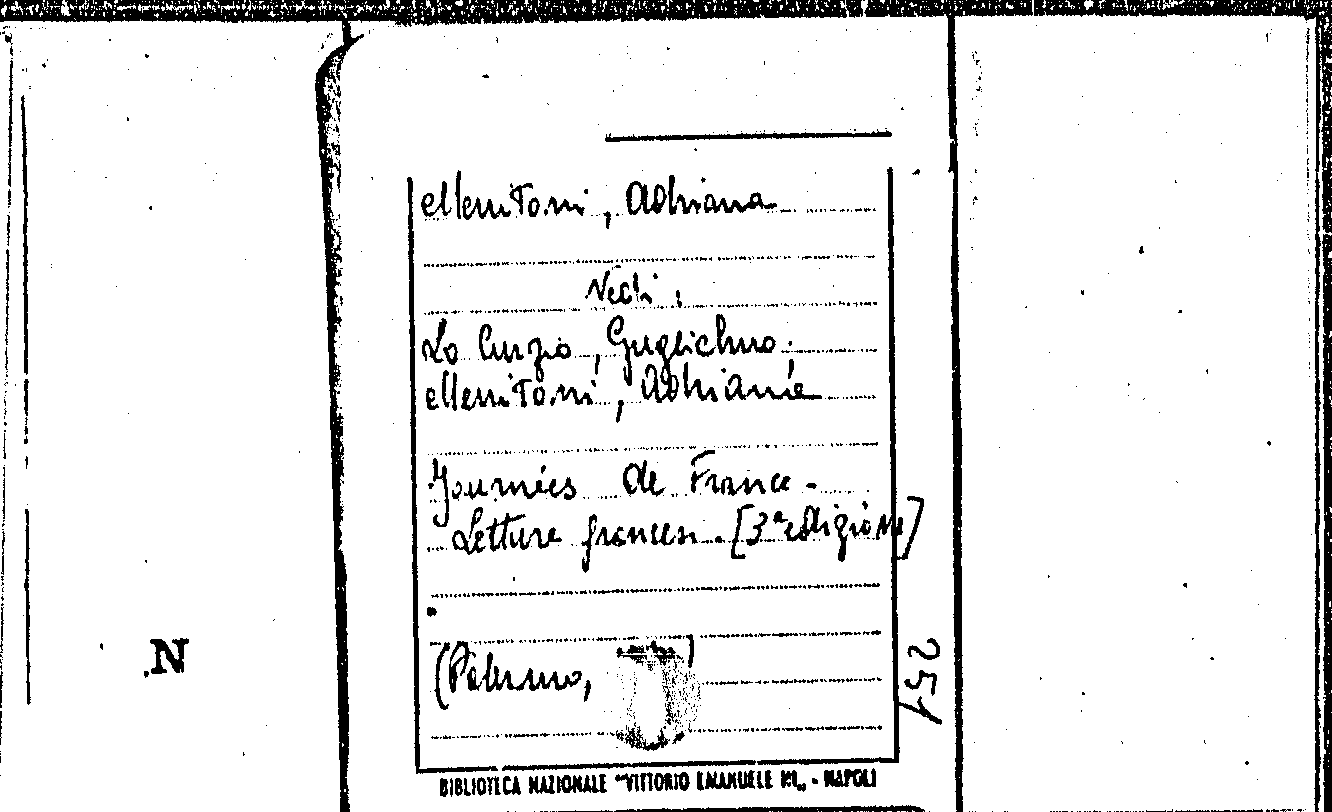 Merritoni, Adriana
Vedi:
Lo Curzio, Guglielmo.
Merritoni, Adriana
Journées de France.
Letture francesi. [3ª edizione]
(Palermo, )
251
N
BIBLIOTECA NAZIONALE "VITTORIO EMANUELE III„ - NAPOLI